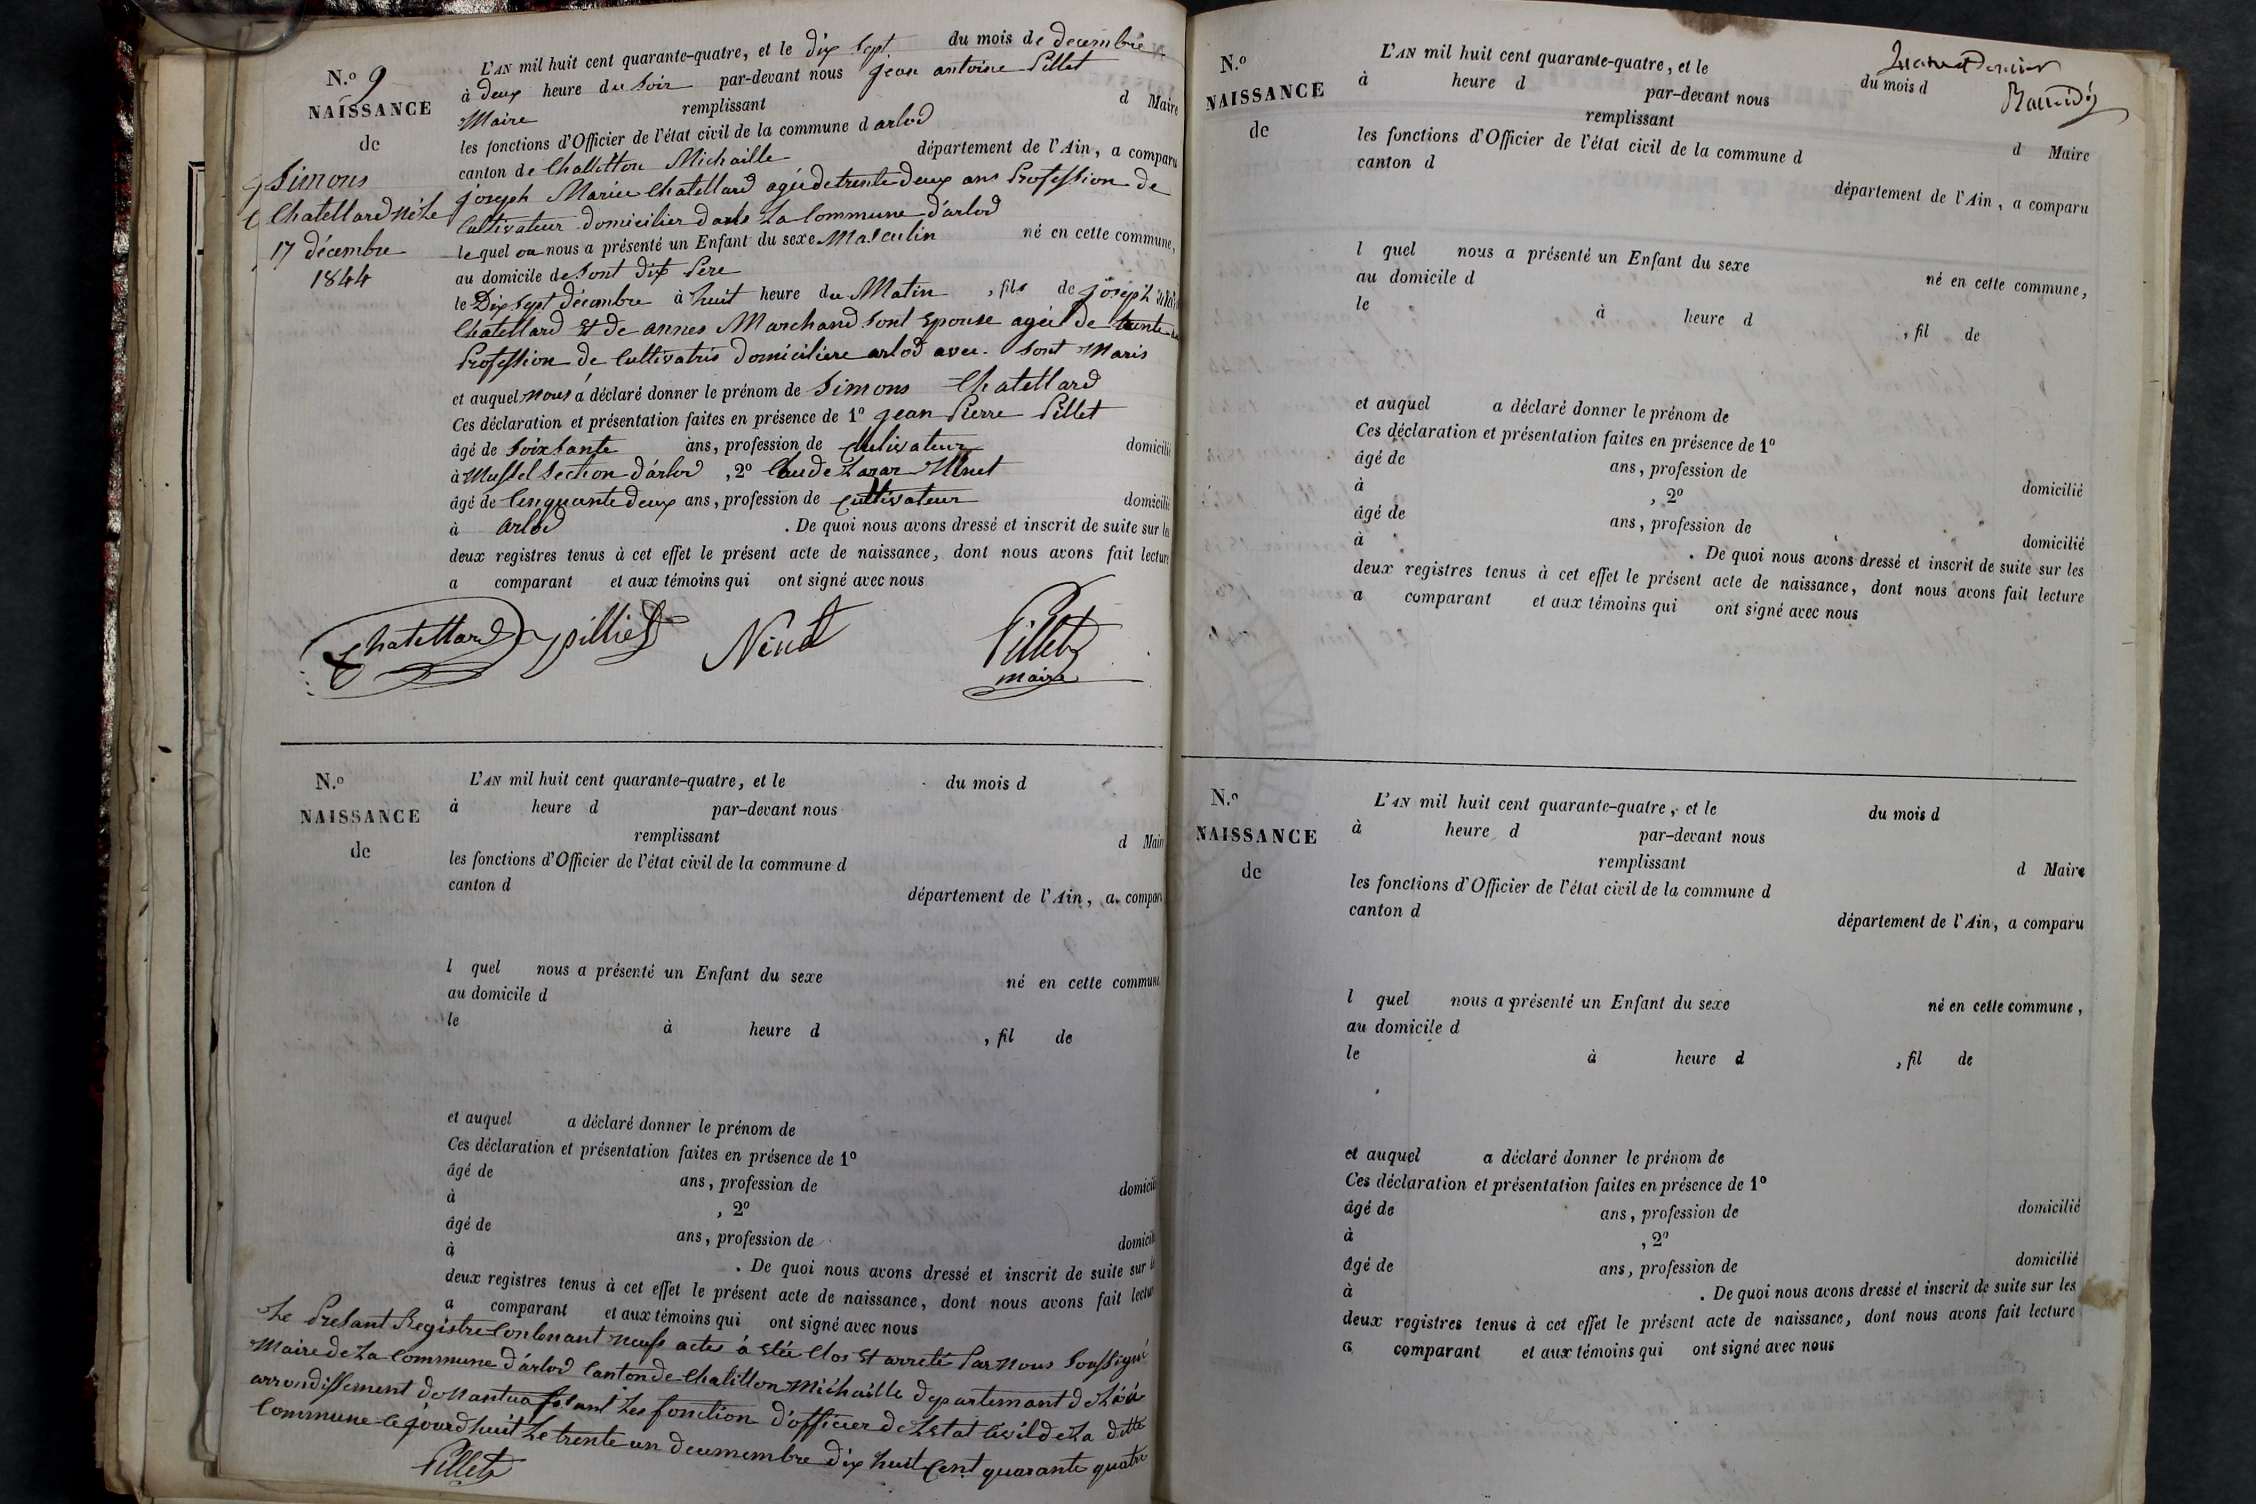 N.º 9
NAISSANCE
de
Simons
Chatellard né Le
17 décembre
1844
L'AN mil huit cent quarante-quatre, et le dix sept du mois de decembre
à deux heure du Soir par-devant nous jean antoine Pillet
Maire remplissant d Maire
les fonctions d'Officier de l'état civil de la commune d arlod
canton de Challitton Michaille département de l'Ain, a comparu
joseph Mariee Chatellard agée de trente deux ans Profession de
Cultivateur domicilier dans La Commune d'arlod
le quel ou nous a présenté un Enfant du sexe Masculin né en cette commune,
au domicile de Sont dit Pere
le Dix Sept décembre à huit heure du Matin, fils de joseph
Chatellard Et de annes Marchand Sont Epouse agée de trente
Profession de Cultivatris domiciliere arlod avec Sont Maris
et auquel nous a déclaré donner le prénom de Simons Chatellard
Ces déclaration et présentation faites en présence de 1º jean Pierre Pillet
âgé de Soixsante ans, profession de Cultivateur domicilié
à Mussel Section d'arlod, 2º Claude Lazar
âgé de Cinquante deux ans, profession de Cultivateur domicilié
à arlod . De quoi nous avons dressé et inscrit de suite sur le
deux registres tenus à cet effet le présent acte de naissance, dont nous avons fait lecture
a comparant et aux témoins qui ont signé avec nous
Chatellard pilliet Pillet
maire
N.º
NAISSANCE
de
L'AN mil huit cent quarante-quatre, et le du mois d
à heure d par-devant nous
remplissant d Mair
les fonctions d'Officier de l'état civil de la commune d
canton d département de l'Ain, a compar
l quel nous a présenté un Enfant du sexe né en cette commune
au domicile d
le à heure d , fil de
et auquel a déclaré donner le prénom de
Ces déclaration et présentation faites en présence de 1º
âgé de ans, profession de domicilié
à , 2º
âgé de ans, profession de domicilié
à . De quoi nous avons dressé et inscrit de suite sur le
deux registres tenus à cet effet le présent acte de naissance, dont nous avons fait lectur
a comparant et aux témoins qui ont signé avec nous
Le Presant Registre Contenant neufs actes á etée Clos Et arreté Par nous Soussigné
Maire de La Commune d'arlod Canton de Chatillon Michaille departemant de L'ain
arrondissement de Nantua fesant Les fonction d'officier de L'Etat Civil de La ditte
Commune Ce jourd huit Le trente un decumembre dix huit Cent quarante quatre
Pillet
N.º
NAISSANCE
de
L'AN mil huit cent quarante-quatre, et le du mois d
à heure d par-devant nous
remplissant d Maire
les fonctions d'Officier de l'état civil de la commune d
canton d département de l'Ain, a comparu
l quel nous a présenté un Enfant du sexe
au domicile d né en cette commune,
le à heure d , fil de
et auquel a déclaré donner le prénom de
Ces déclaration et présentation faites en présence de 1º
âgé de ans, profession de
à , 2º domicilié
âgé de ans, profession de
à domicilié
. De quoi nous avons dressé et inscrit de suite sur les
deux registres tenus à cet effet le présent acte de naissance, dont nous avons fait lecture
a comparant et aux témoins qui ont signé avec nous
N.º
NAISSANCE
de
L'AN mil huit cent quarante-quatre, et le du mois d
à heure d par-devant nous
remplissant d Maire
les fonctions d'Officier de l'état civil de la commune d
canton d département de l'Ain, a comparu
l quel nous a présenté un Enfant du sexe né en cette commune,
au domicile d
le à heure d , fil de
et auquel a déclaré donner le prénom de
Ces déclaration et présentation faites en présence de 1º
âgé de ans, profession de domicilié
à , 2º
âgé de ans, profession de domicilié
à . De quoi nous avons dressé et inscrit de suite sur les
deux registres tenus à cet effet le présent acte de naissance, dont nous avons fait lecture
a comparant et aux témoins qui ont signé avec nous